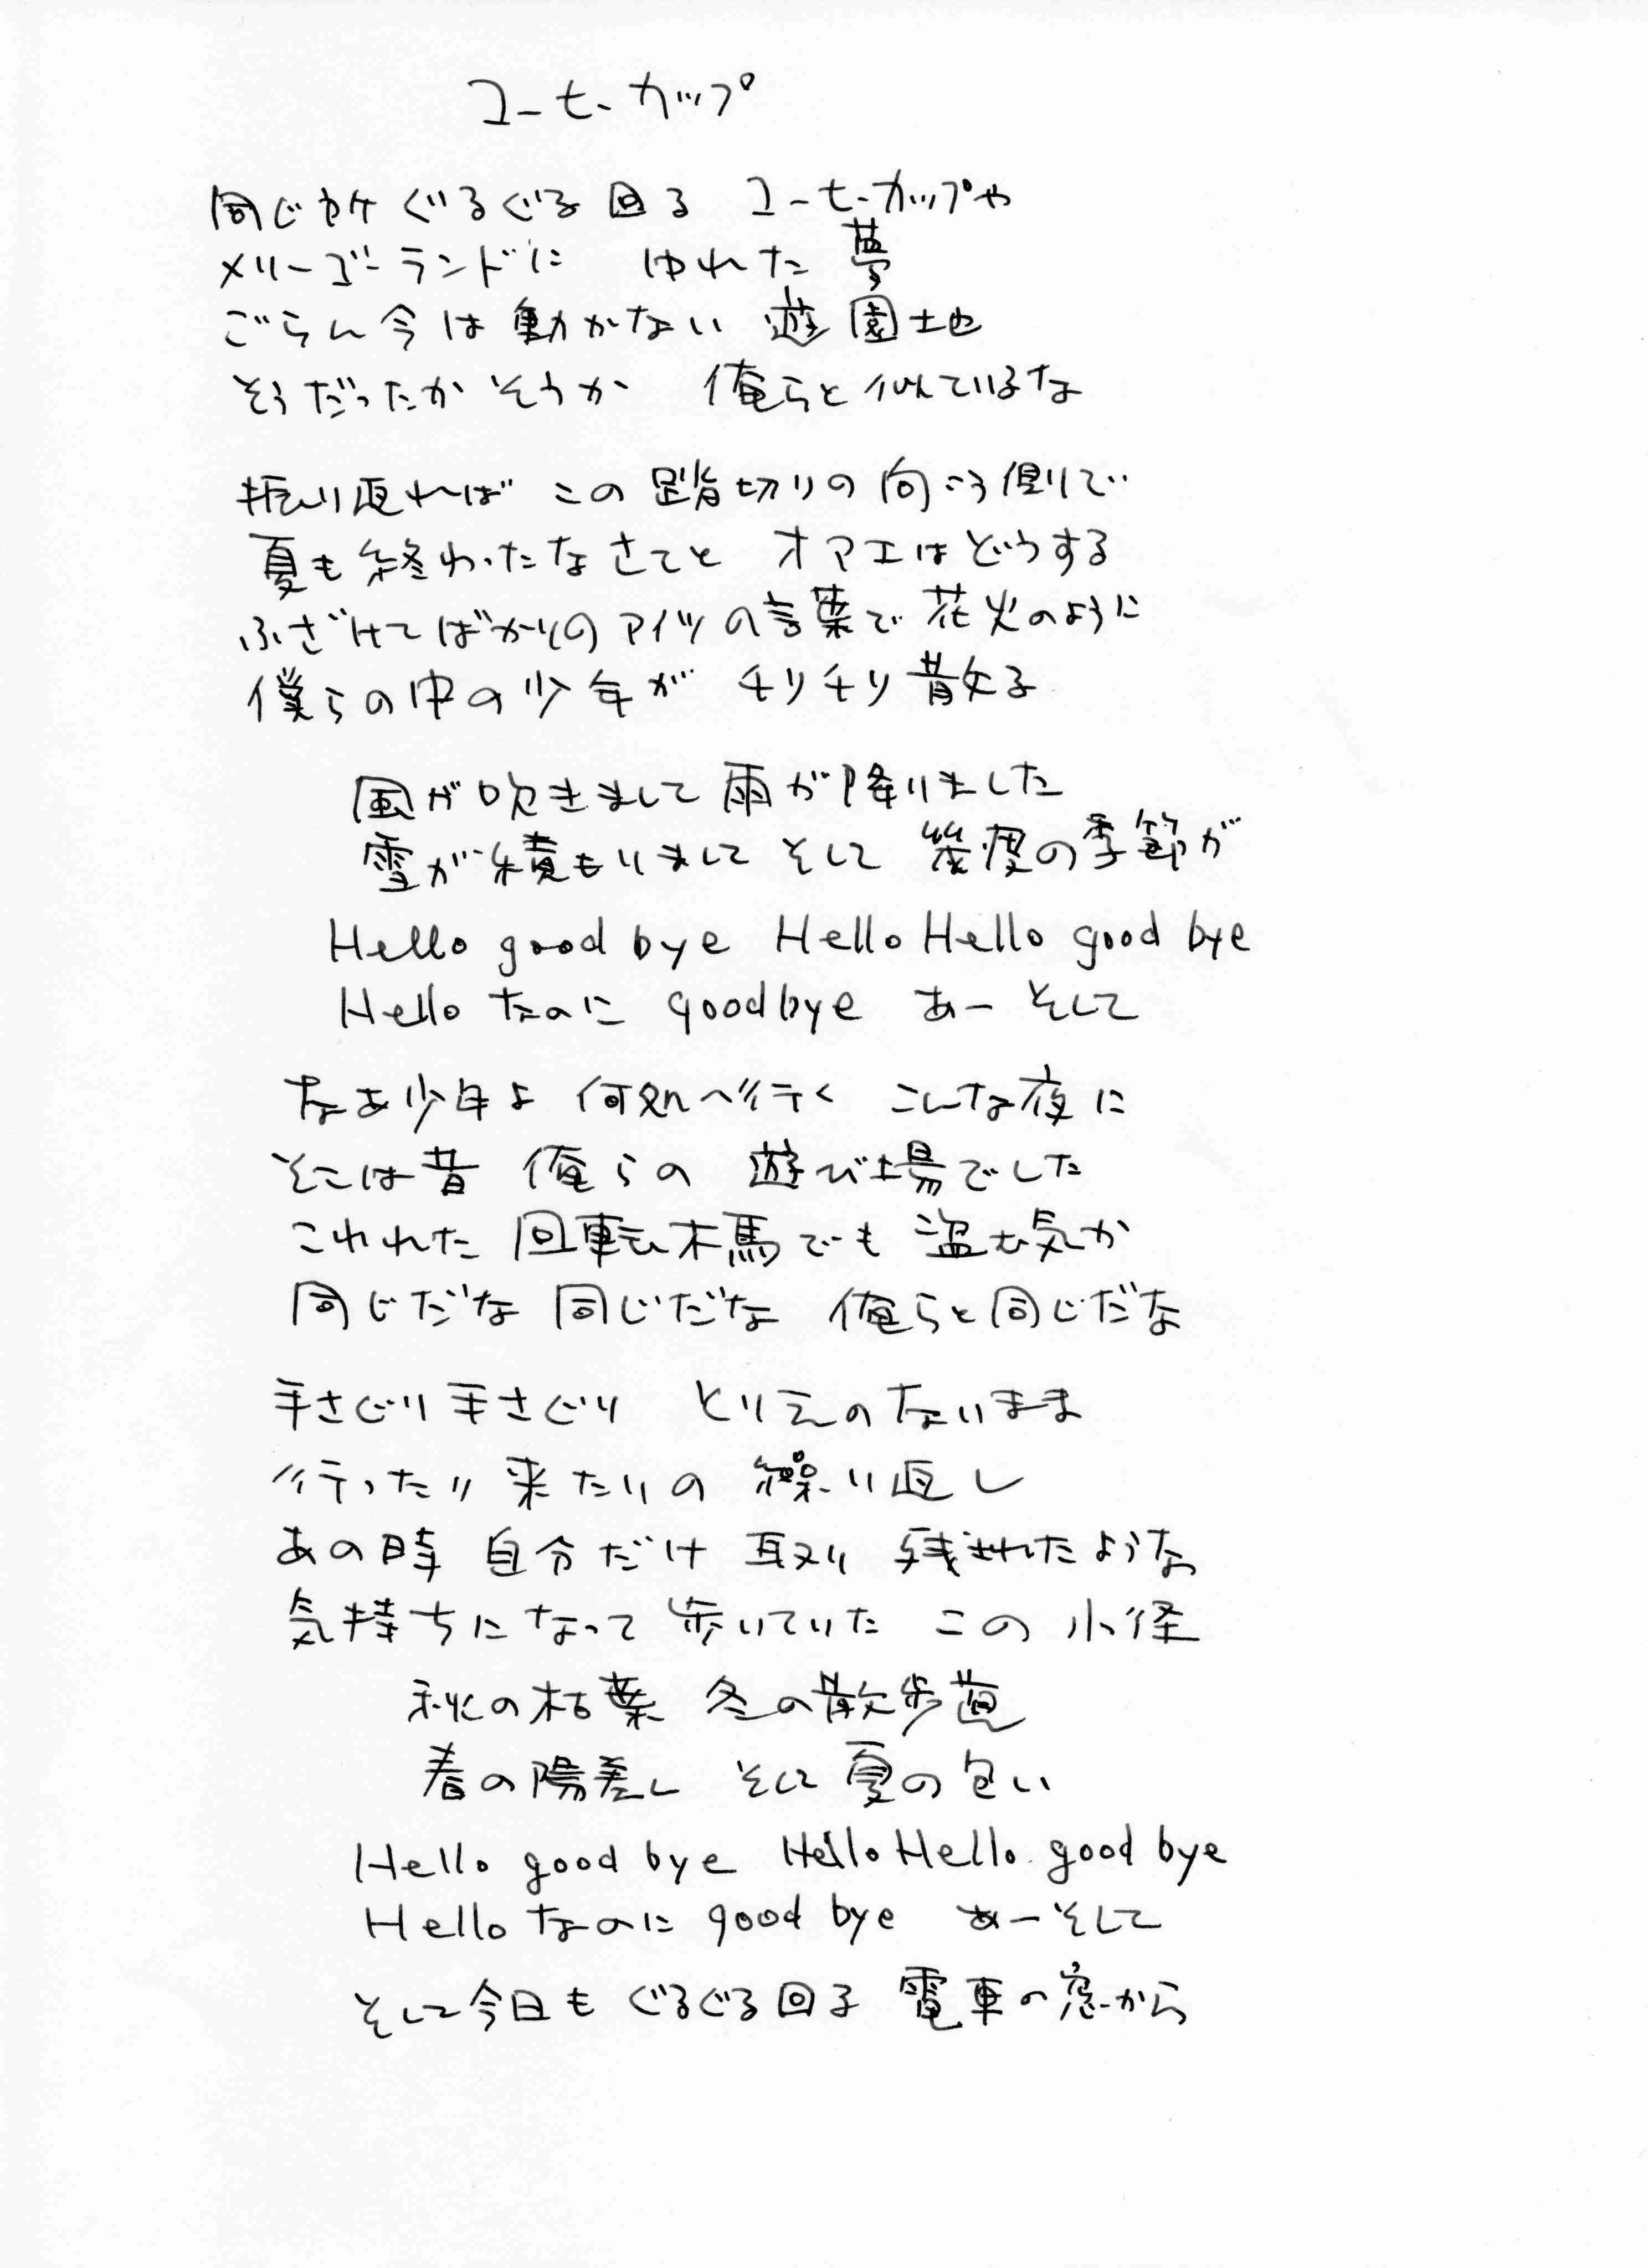 コーヒーカップ
同じ所ぐるぐる回る コーヒーカップや
メリーゴーランドに ゆれた夢
ごらん今は動かない 遊園地
そうだったかそうか 俺らと似ているな
振り返れば この踏切りの向こう側で
夏も終わったなさてと オマエはどうする
ふざけてばかりのアイツの言葉で 花火のように
僕らの中の少年が チリチリ散る
風が吹きまして 雨が降りました
雪が積もりまして そして 幾度の季節が
Hello good bye Hello Hello good bye
Hello なのに good bye あー そして
なあ少年よ 何処へ行く こんな夜に
そこは昔 俺らの 遊び場でした
こわれた 回転木馬でも 盗む気か
同じだな 同じだな 俺らと同じだな
手さぐり手さぐり とりえのないまま
行ったり来たりの 繰り返し
あの時 自分だけ 取り残されたような
気持ちになって 歩いていた この小径
秋の枯葉 冬の散歩道
春の陽差し そして 夏の匂い
Hello good bye Hello Hello good bye
Hello なのに good bye あーそして
そして今日も ぐるぐる回る 電車の窓から